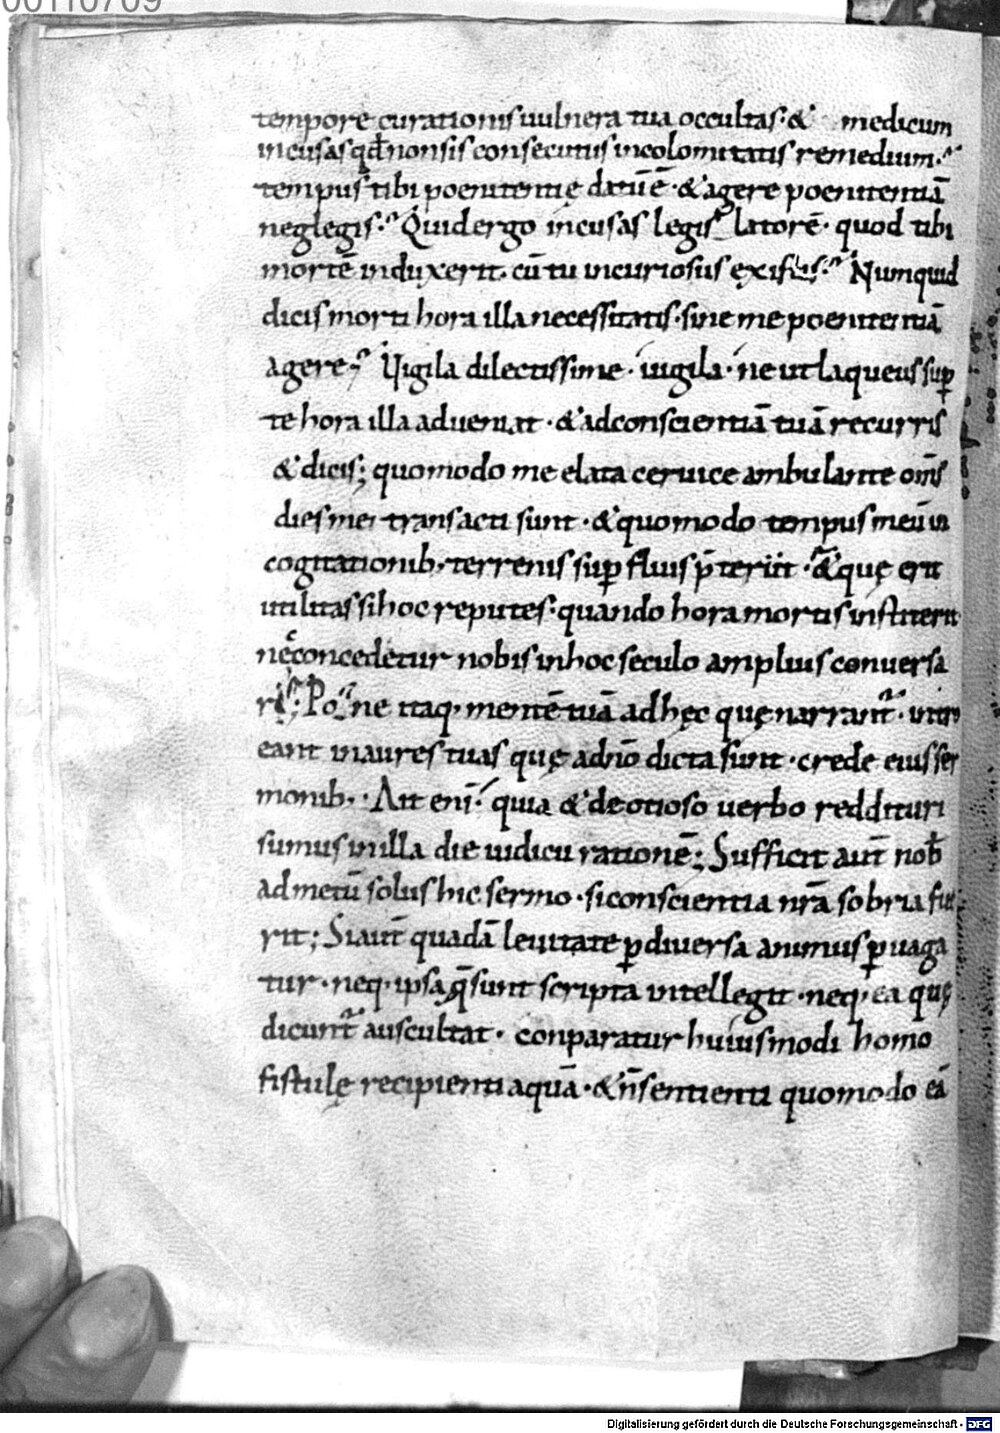 00110709
tempore curationis uulnera tua occultas· & medicum
incusas qđ non sis consecutus incolomitatis remedium·
tempus tibi poenitentię datū ē· & agere poenitentiā
neglegis· Quid ergo incusas legis latorē· quod tibi
mortē induxerit· cū tu incuriosus Numquid
dicis morti hora illa necessitatis· sine me poenitentiā
agere Vigila dilectissime· uigila· ne ut laqueus sup̱
te hora illa adueniat· & ad conscientiā tuā recurris
& dicis; quomodo me elata ceruice ambulante om̄s
dies mei transacti sunt· & quomodo tempus meū in
cogitationib· terrenis sup̱fluis p̄teriit· & quę erit
utilitas si hoc reputes· quando hora mortis institerit
nec concedetur nobis in hoc seculo amplius conuersa
ri; Pone itaq· mentē tuā ad hęc quę narrant̄· intro
eant in aures tuas quę a dn̄o dicta sunt· crede eius ser
monib·· Ait enī· quia & de otioso uerbo reddituri
sumus in illa die iudicii rationē; Sufficit aut̄ nob̄
ad metū solus hic sermo· si conscientia nr̄a sobria fue
rit; Si aut̄ quadā leuitate p̱ diuersa animus p̱uaga
tur· neq· ipsa q̄ sunt scripta intellegit· neq· ea quę
dicunt̄ auscultat· conparatur huiusmodi homo
fistulę recipienti aquā· & n̄ sentienti quomodo eā
Digitalisierung gefördert durch die Deutsche Forschungsgemeinschaft - DFG